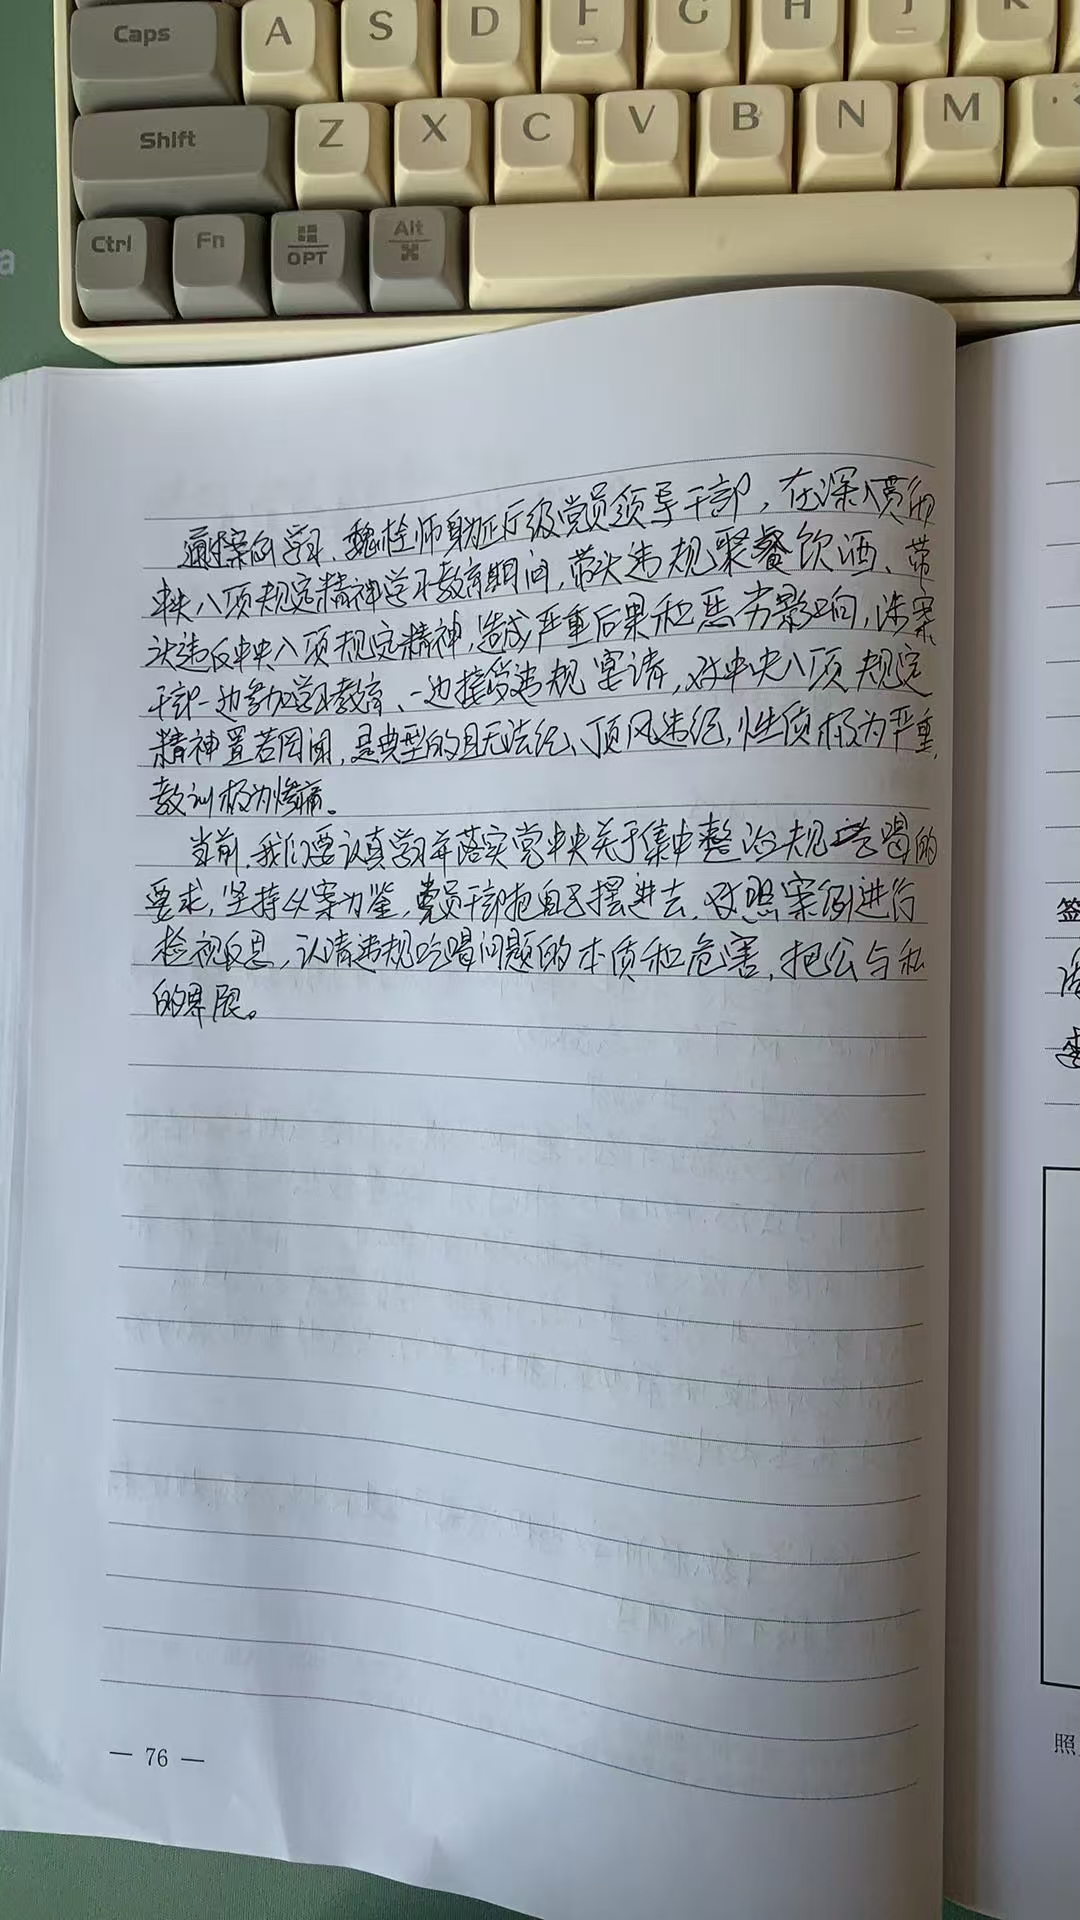 Caps A S D F G H J K
Shift Z X C V B N M
Ctrl Fn OPT Alt
a
通过案例学习、魏桂师身为正厅级党员领导干部，在深入贯彻
中央八项规定精神学习教育期间，带头违规聚餐饮酒、带
头违反中央八项规定精神，造成严重后果和恶劣影响，涉案
干部一边参加学习教育、一边接受违规宴请，对中央八项规定
精神置若罔闻，是典型的目无法纪、顶风违纪，性质极为严重，
教训极为惨痛。
当前，我们要认真学习并落实党中央关于集中整治违规吃喝的
要求，坚持以案为鉴，党员干部把自己摆进去，对照案例进行
检视反思，认清违规吃喝问题的本质和危害，把公与私
的界限。
— 76 —
签
照